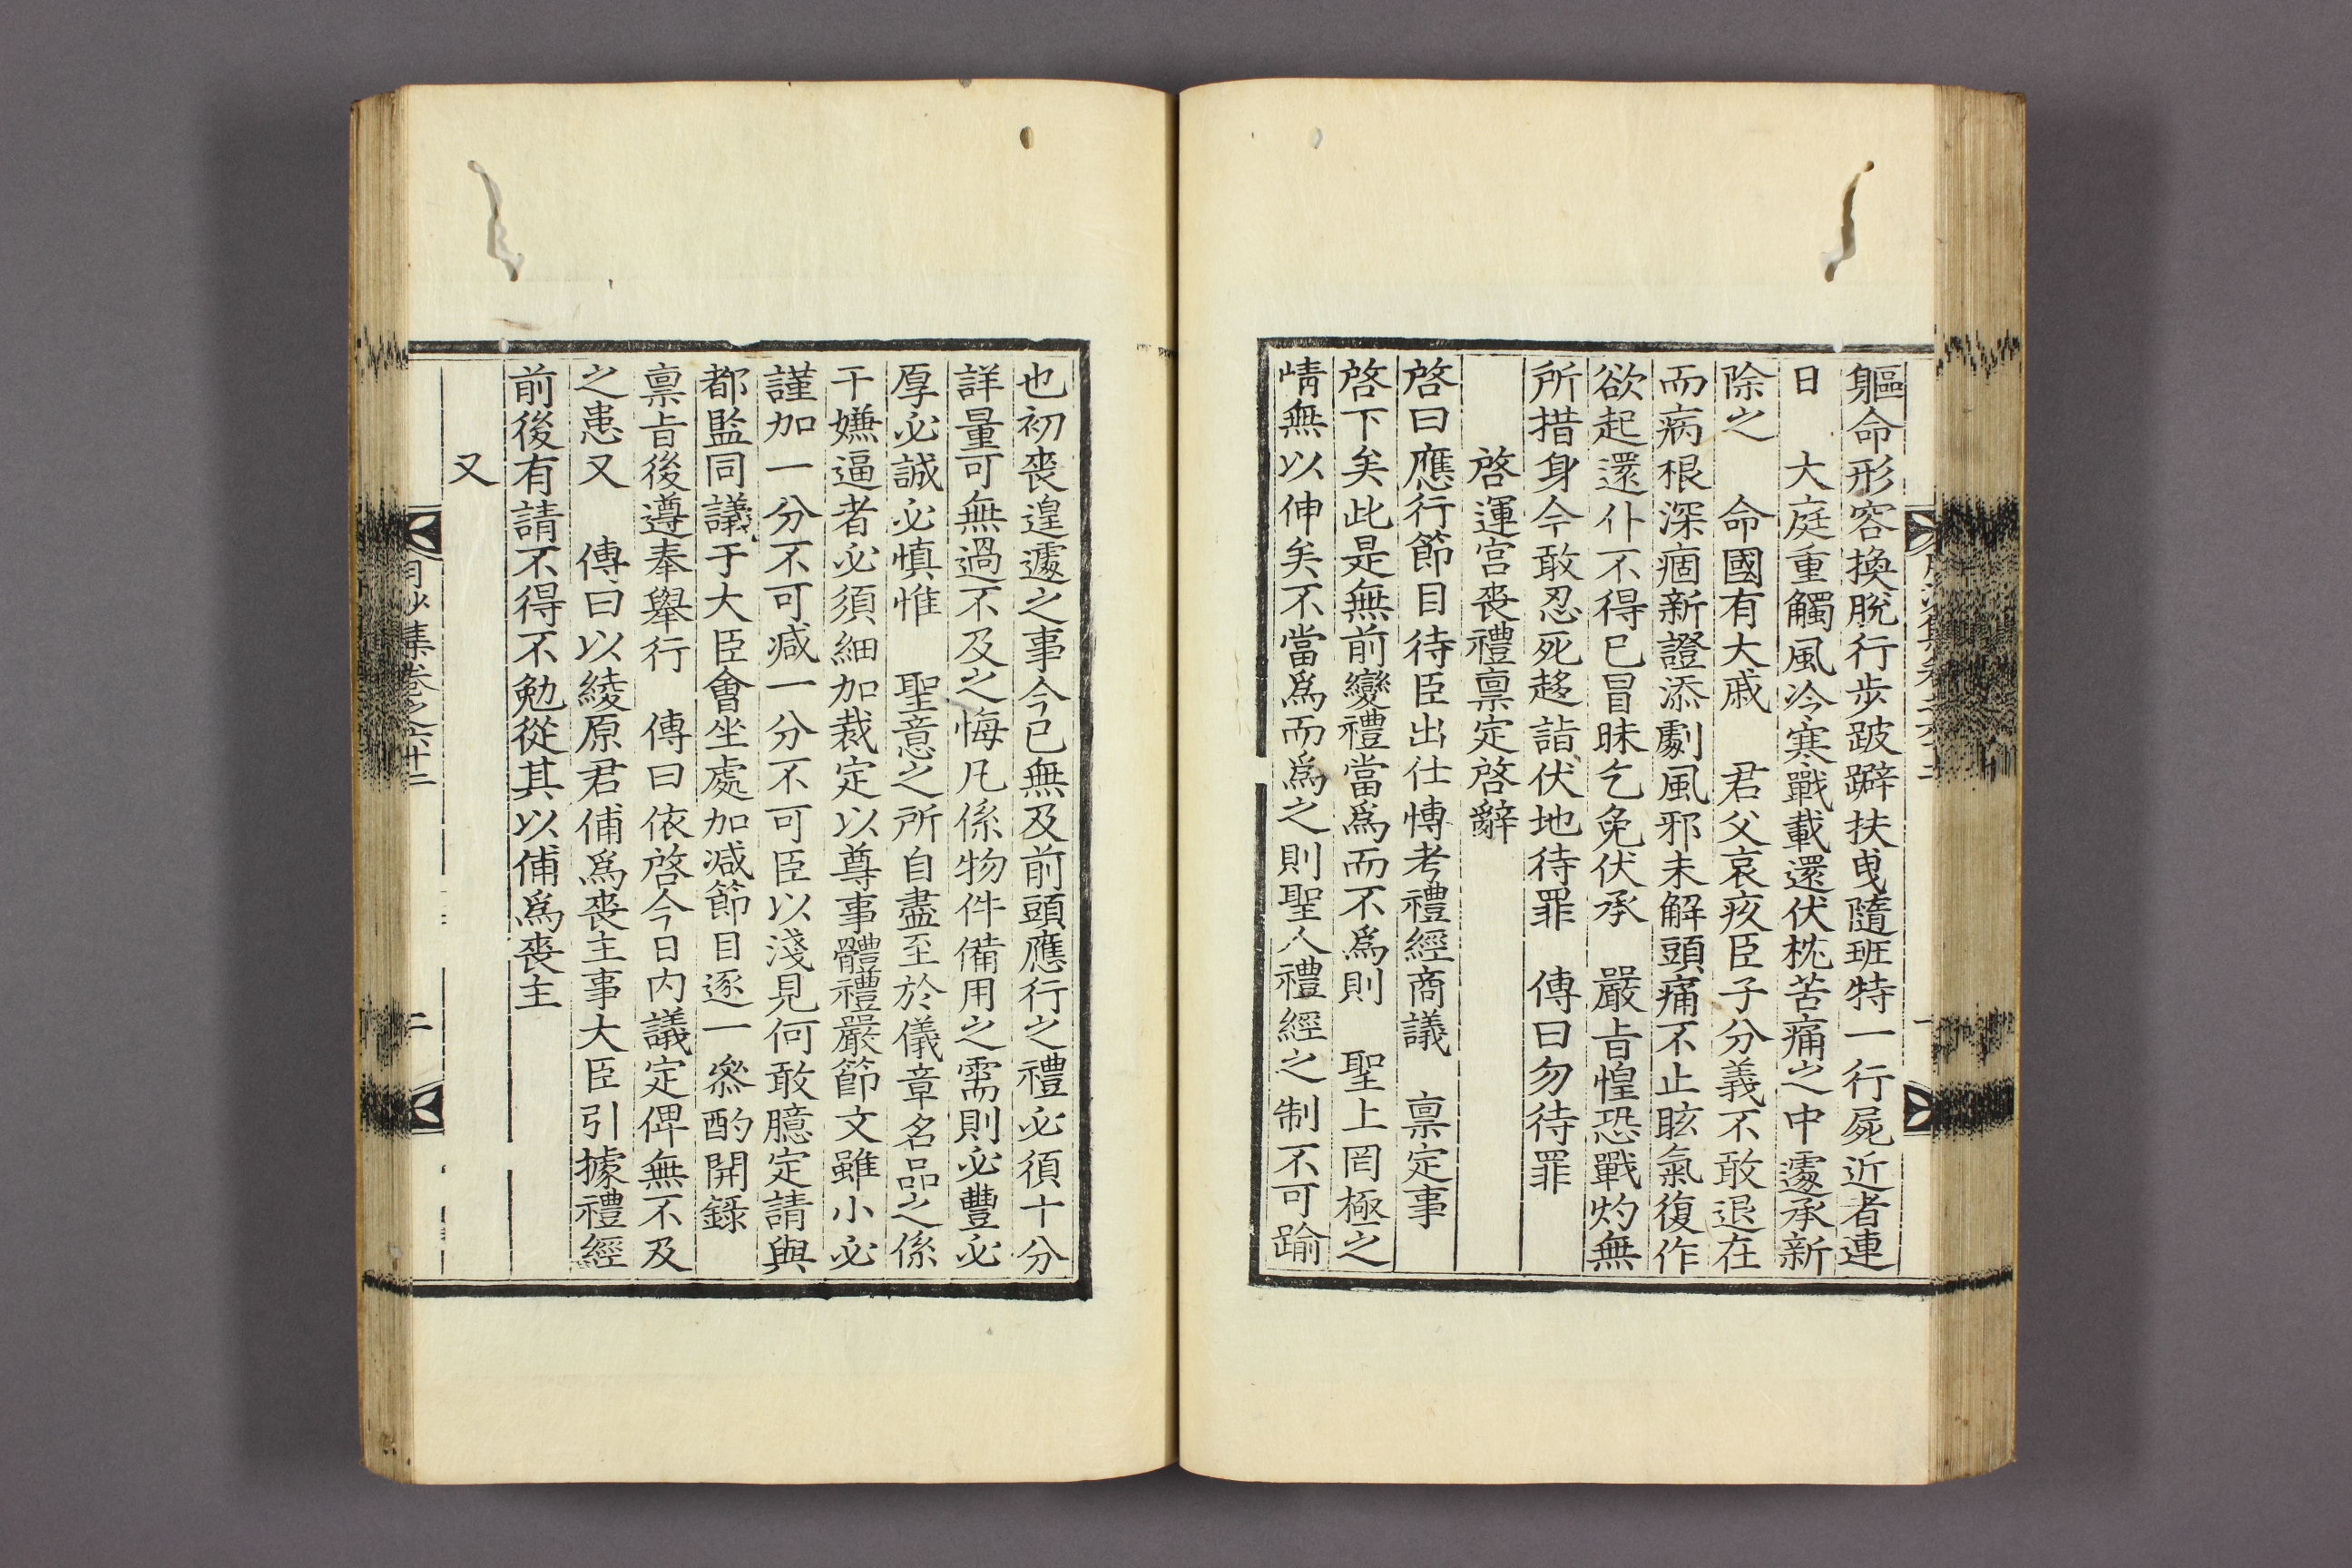 軀命形容換脫行步跛躃扶曳隨班特一行屍近者連
日　大庭重觸風冷寒戰載還伏枕苦痛之中遽承新
除之　命國有大戚　君父哀疚臣子分義不敢退在
而病根深痼新證添劇風邪未解頭痛不止眩氣復作
欲起還仆不得已冒昧乞免伏承　嚴旨惶恐戰灼無
所措身今敢忍死趍詣伏地待罪　傳曰勿待罪
啓運宮喪禮稟定啓辭
啓曰應行節目待臣出仕博考禮經商議　稟定事
啓下矣此是無前變禮當爲而不爲則　聖上罔極之
情無以伸矣不當爲而爲之則聖人禮經之制不可踰
也初喪遑遽之事今已無及前頭應行之禮必須十分
詳量可無過不及之悔凡係物件備用之需則必豐必
厚必誠必慎惟　聖意之所自盡至於儀章名品之係
干嫌逼者必須細加裁定以尊事體禮嚴節文雖小必
謹加一分不可减一分不可臣以淺見何敢臆定請與
都監同議于大臣會坐處加减節目逐一叅酌開錄
稟旨後遵奉舉行　傳曰依啓今日內議定俾無不及
之患又　傳曰以綾原君俌爲喪主事大臣引據禮經
前後有請不得不勉從其以俌爲喪主
又
月沙集卷之六十二　二